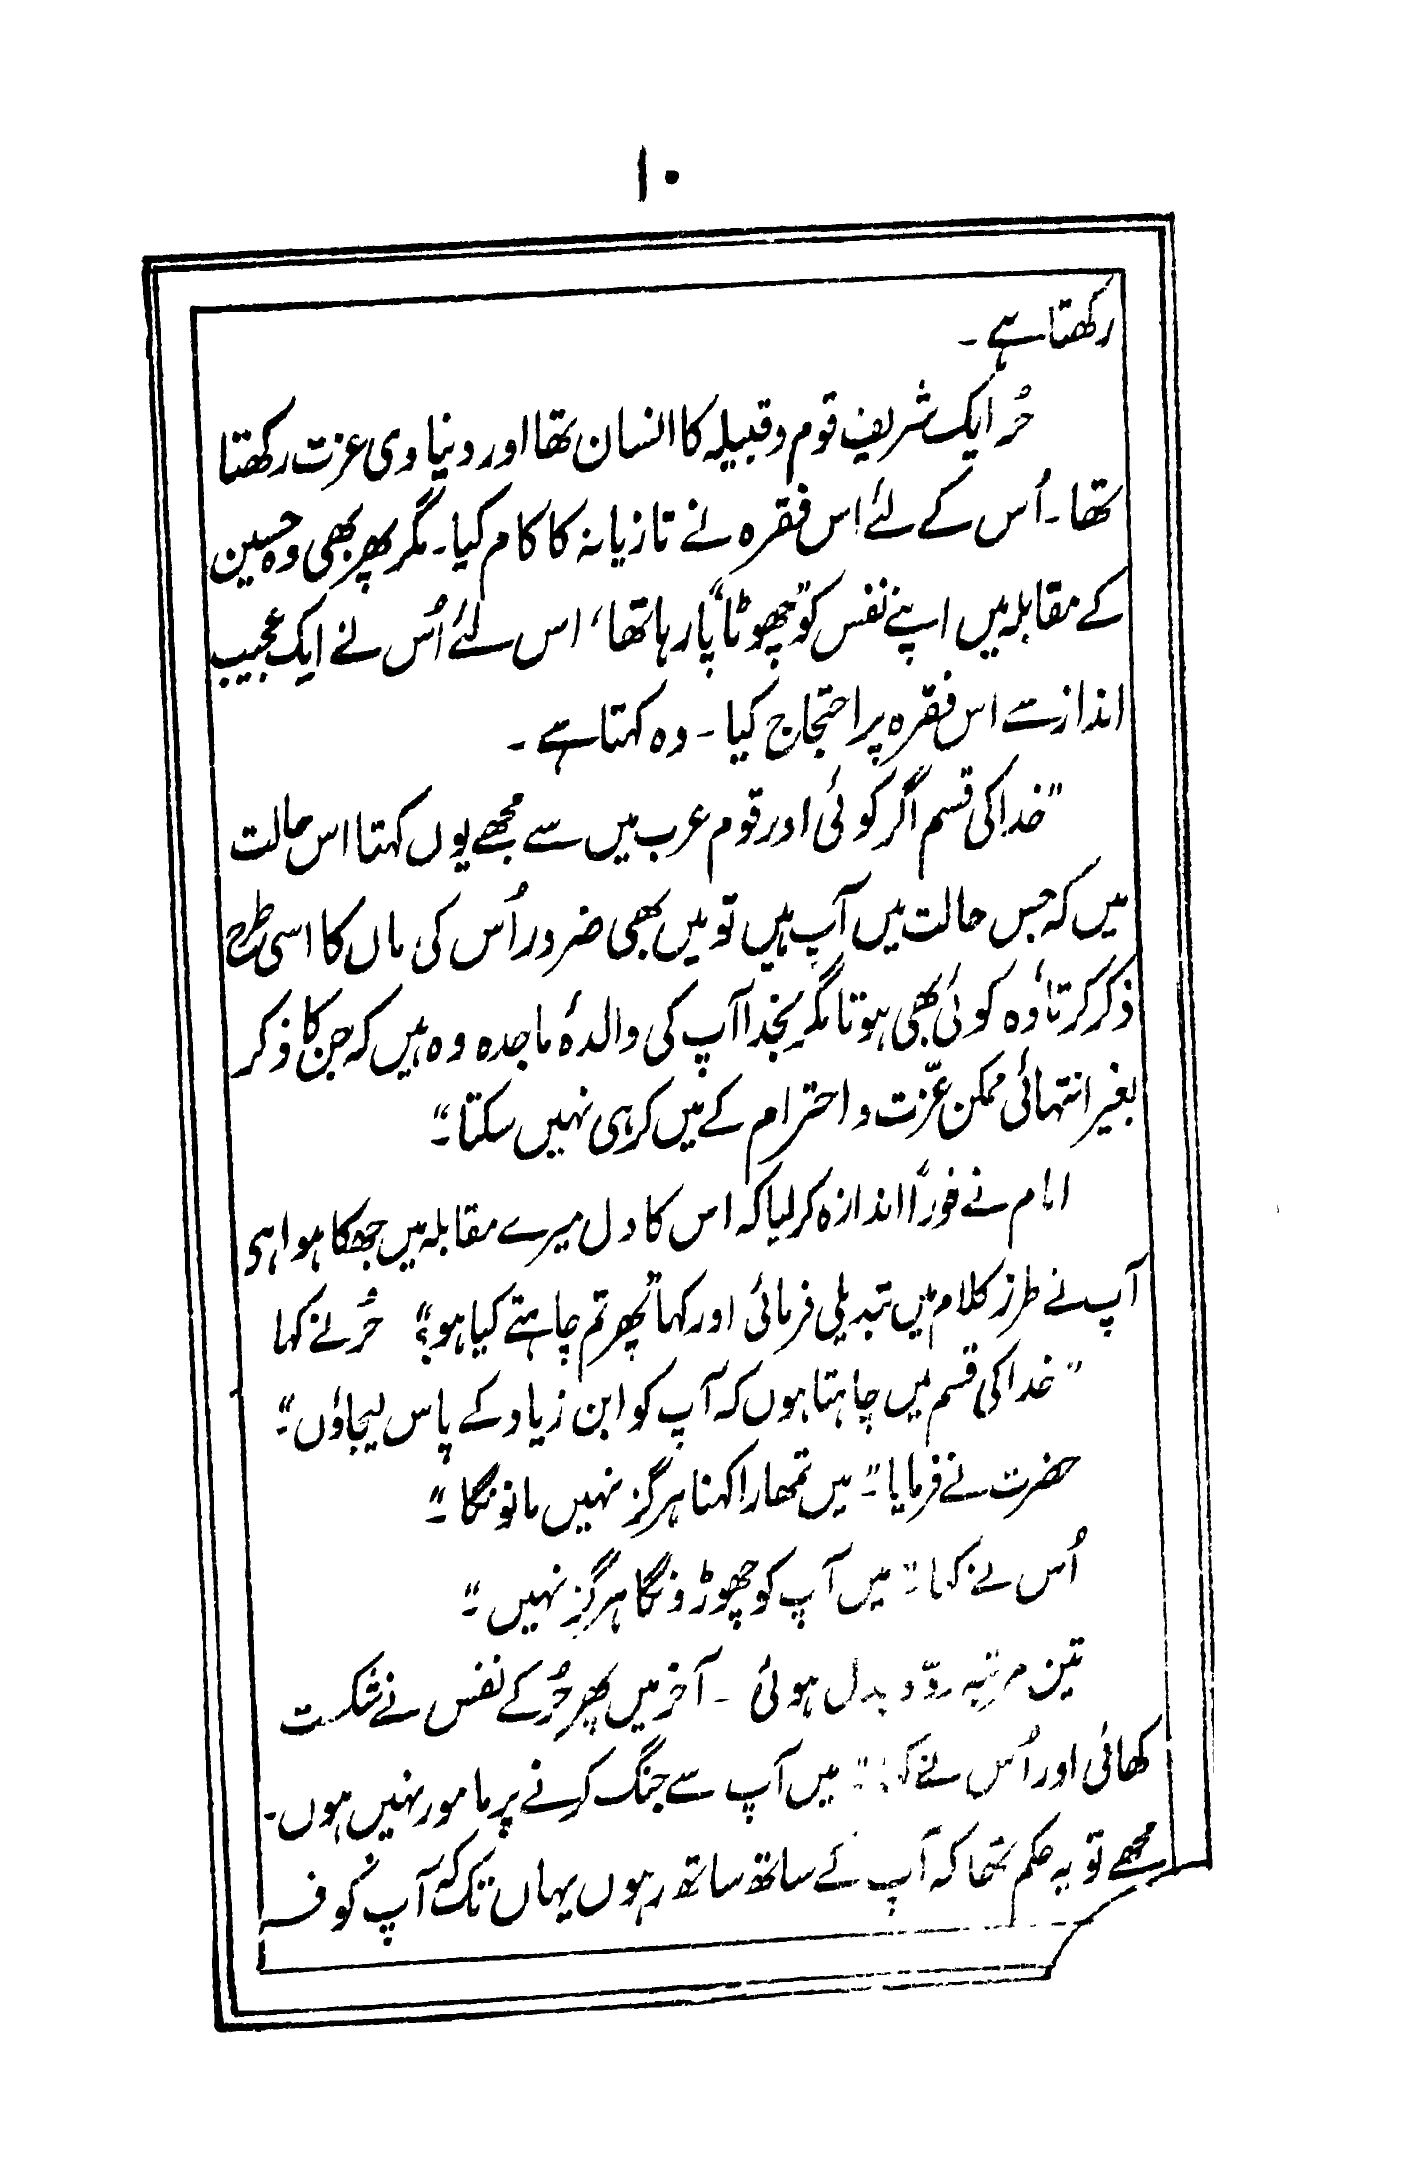 ۱۰
رکھتا ہے ۔
حُر ایک شریف قوم و قبیلہ کا انسان تھا اور دنیاوی عزت رکھتا
تھا۔ اُس کے لئے اس فقرہ نے تازیانہ کا کام کیا۔ مگر پھر بھی وہ حسین
کے مقابلہ میں اپنے نفس کو "چھوٹا" پا رہا تھا، اس لئے اُس نے ایک عجیب
انداز سے اس فقرہ پر احتجاج کیا ۔ وہ کہتا ہے ۔
"خدا کی قسم اگر کوئی اور قوم عرب میں سے مجھے یوں کہتا اس حالت
میں کہ جس حالت میں آپ ہیں تو میں بھی ضرور اُس کی ماں کا اسی طرح
ذکر کرتا، وہ کوئی بھی ہوتا مگر بخدا آپ کی والدۂ ماجدہ وہ ہیں کہ جن کا ذکر
بغیر انتہائی ممکن عزّت و احترام کے میں کر ہی نہیں سکتا۔"
امام نے فوراً اندازہ کر لیا کہ اس کا دل میرے مقابلہ میں جھکا ہوا ہی
آپ نے طرز کلام میں تبدیلی فرمائی اور کہا "پھر تم چاہتے کیا ہو؟" حُر نے کہا
"خدا کی قسم میں چاہتا ہوں کہ آپ کو ابن زیاد کے پاس لیجاؤں۔"
حضرت نے فرمایا۔" میں تمھارا کہنا ہرگز نہیں مانونگا۔"
اُس نے کہا۔" میں آپ کو چھوڑونگا ہرگز نہیں۔"
تین مرتبہ ردّ و بدل ہوئی ۔ آخر میں پھر حُر کے نفس نے شکست
کھائی اور اُس نے کہا" میں آپ سے جنگ کرنے پر مامور نہیں ہوں۔
مجھے تو یہ حکم تھا کہ آپ کے ساتھ ساتھ رہوں یہاں تک کہ آپ کو